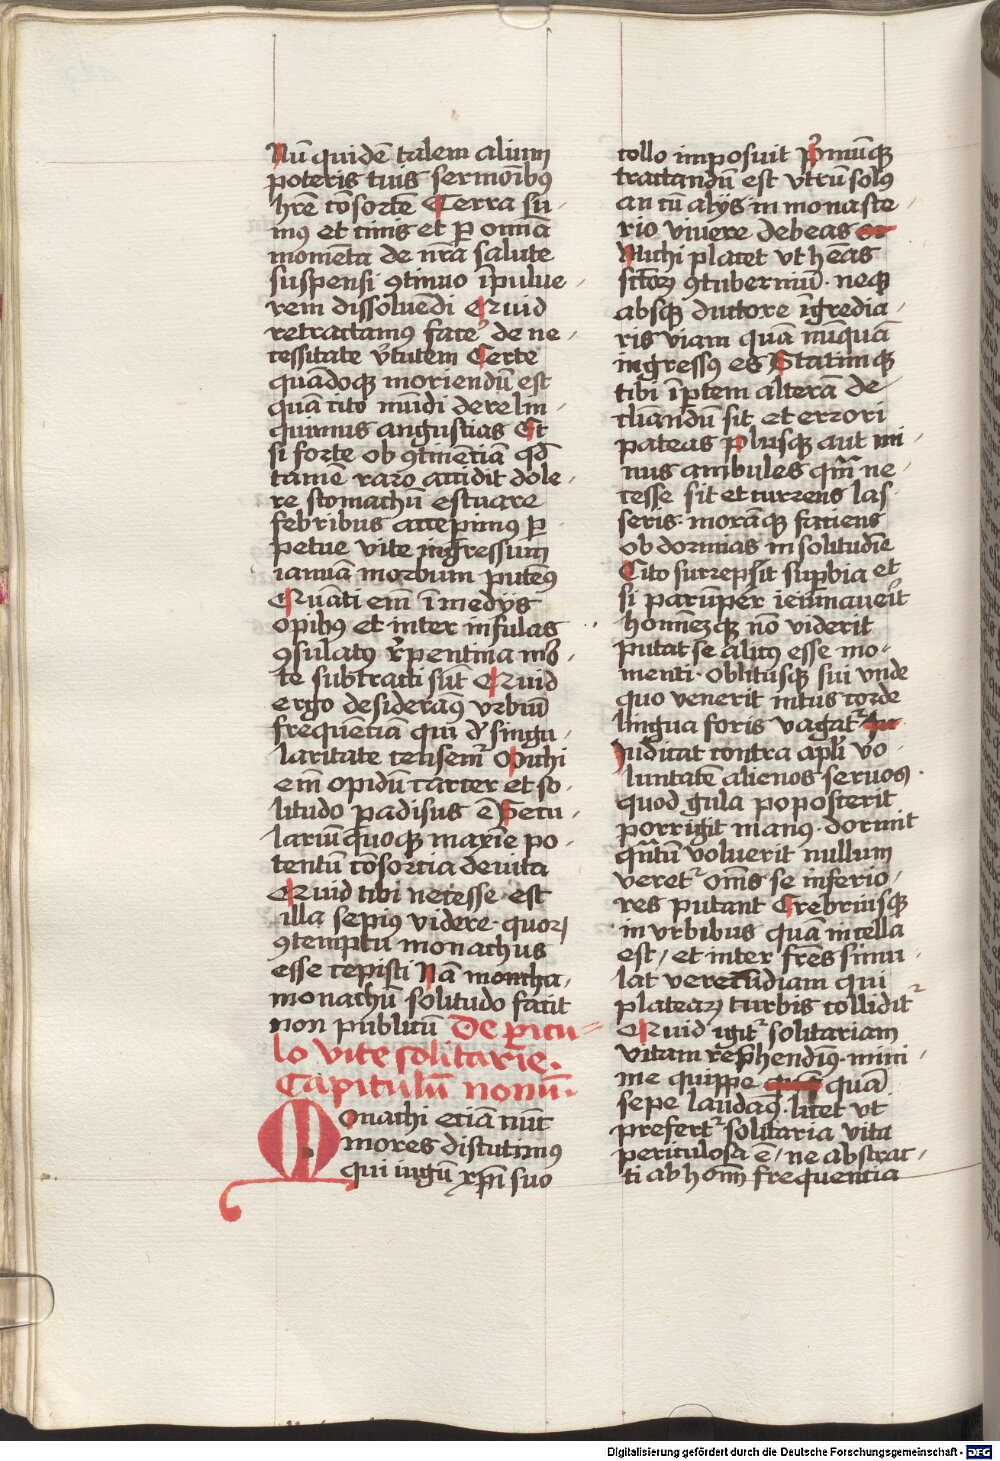 Nū quidē talem alium
poteris tuis sermoībꝰ
hr̄e cōsortē Terra su-
mꝰ et cinis et ꝑ omīa
momēta de nr̄a salute
suspensi ꝯtinuo ī pulue-
rem dissoluēdi Quid
retractamꝰ face᷑ de ne-
cessitate v̄tutem Certe
quādoqꝫ moriendū est
quā cito mūdi derelin-
quimus angustias Et
si forte ob ꝯtinētiā qd̄
tamē raro accidit dole-
re stomachū estuare
febribus accepimꝰ ꝑ-
petue vite ingressum
ianuā morbum putēꝰ
Quāti em̄ ī medijs
opibꝰ et inter infulas
ꝯsulatꝰ r̄pentina mo-
te subtracti sūt Quid
ergo desideramꝰ vrbiū
frequētiā qui d̄ singu-
laritate censem᷑ Michi
em̄ opidū carcer et so-
litudo ꝑadisus ē Secu-
lariū quoqꝫ maxīe po-
tentū cōsorcia deuita
Quid tibi necesse est
illa sepius videre quoꝝ
ꝯtemptu monachus
esse cepisti Nā moncha-
monachū solitudo facit
non publicū De pericu-
lo vite solitarie.
Capitulū nonū.
Monachi eciā nūc
mores discutimꝰ
qui iugū xp̄i suo
collo imposuit P̄mūqꝫ
tractandū est vtrū solꝰ
an cū alijs in monaste-
rio viuere debeas
Michi placet vt hēas
sc̄toꝝ ꝯtuberniū. neqꝫ
absqꝫ ductore īgredia-
ris viam quā nūquā
ingressꝰ es Statimqꝫ
tibi ī ptem alterā de-
cliandū sit et errori
pateas Plusqꝫ aut mi-
nus ambules qm̄ ne-
cesse sit et currens las-
seris. morāqꝫ faciens
obdormias in solitudīe
Cito surrepsit suꝑbia et
si parūper ieiunaueīt
homīezqꝫ nō viderit
putat se alicꝰ esse mo-
menti. oblitusqꝫ sui vnde
quo venerit intus corde
lingua foris vagat᷑
Iudicat contra apl̄i vo-
luntatē alienos seruos.
quod gula poposcerit
porrigit manꝰ. dormit
qn̄tū voluerit nullum
veret᷑ om̄s se inferio-
res putant Crebriusqꝫ
in vrbibus quā in cella
est, et inter fr̄es simu-
lat verecūdiam qui
plateaꝝ turbis collidit᷑
Quid igit᷑ solitariam
vitam rep̄hendimꝰ. mini-
me quippe quā
sepe laudamꝰ. licet vt
prefert᷑ solitaria vita
periculosa ē, ne abstrac-
ti ab hoīm frequentia
Digitalisierung gefördert durch die Deutsche Forschungsgemeinschaft - DFG